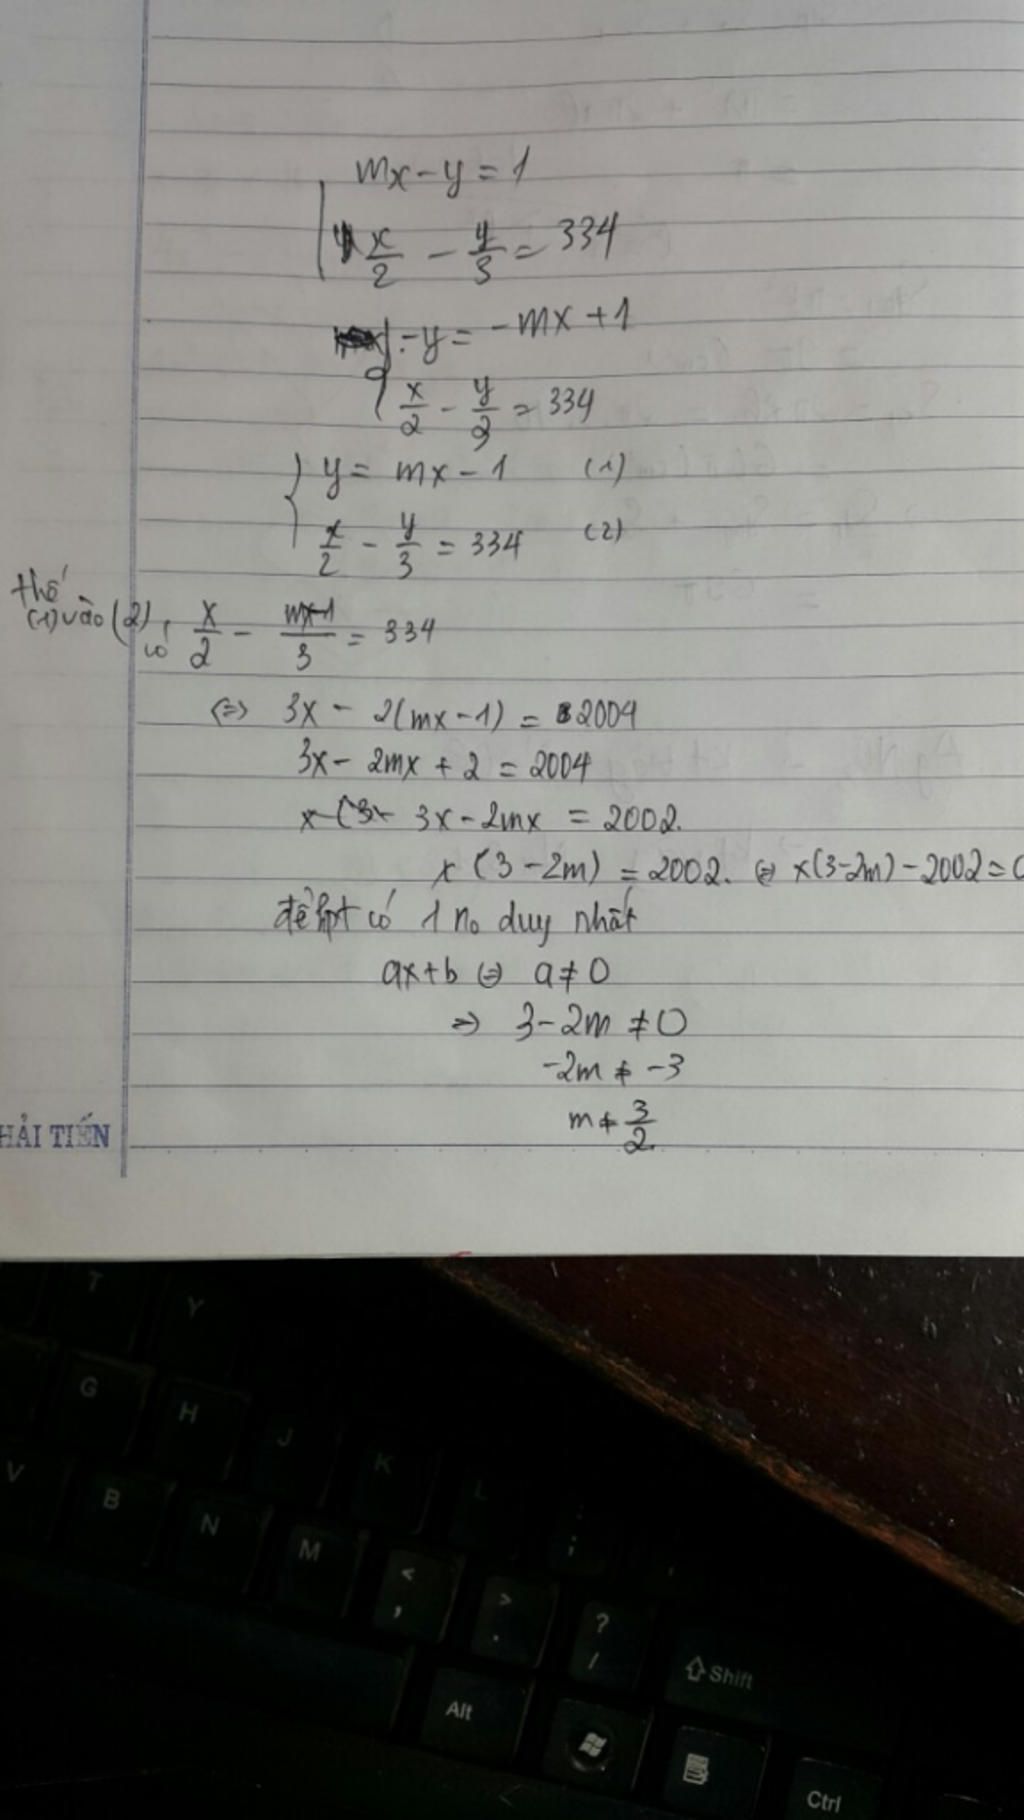 mx - y = 1
x/2 - y/3 = 334
-y = -mx + 1
x/2 - y/3 = 334
y = mx - 1 (1)
x/2 - y/3 = 334 (2)
thế
(1) vào (2) có x/2 - (mx-1)/3 = 334
<=> 3x - 2(mx - 1) = 2004
3x - 2mx + 2 = 2004
3x - 2mx = 2002.
x (3 - 2m) = 2002. <=> x(3-2m) - 2002 = 0
để hpt có 1 no duy nhất
ax+b <=> a ≠ 0
=> 3 - 2m ≠ 0
-2m ≠ -3
m ≠ 3/2.
HẢI TIẾN
T Y
G H J K L
V B N M < , > . ? / ⇧ Shift
;
Alt Ctrl